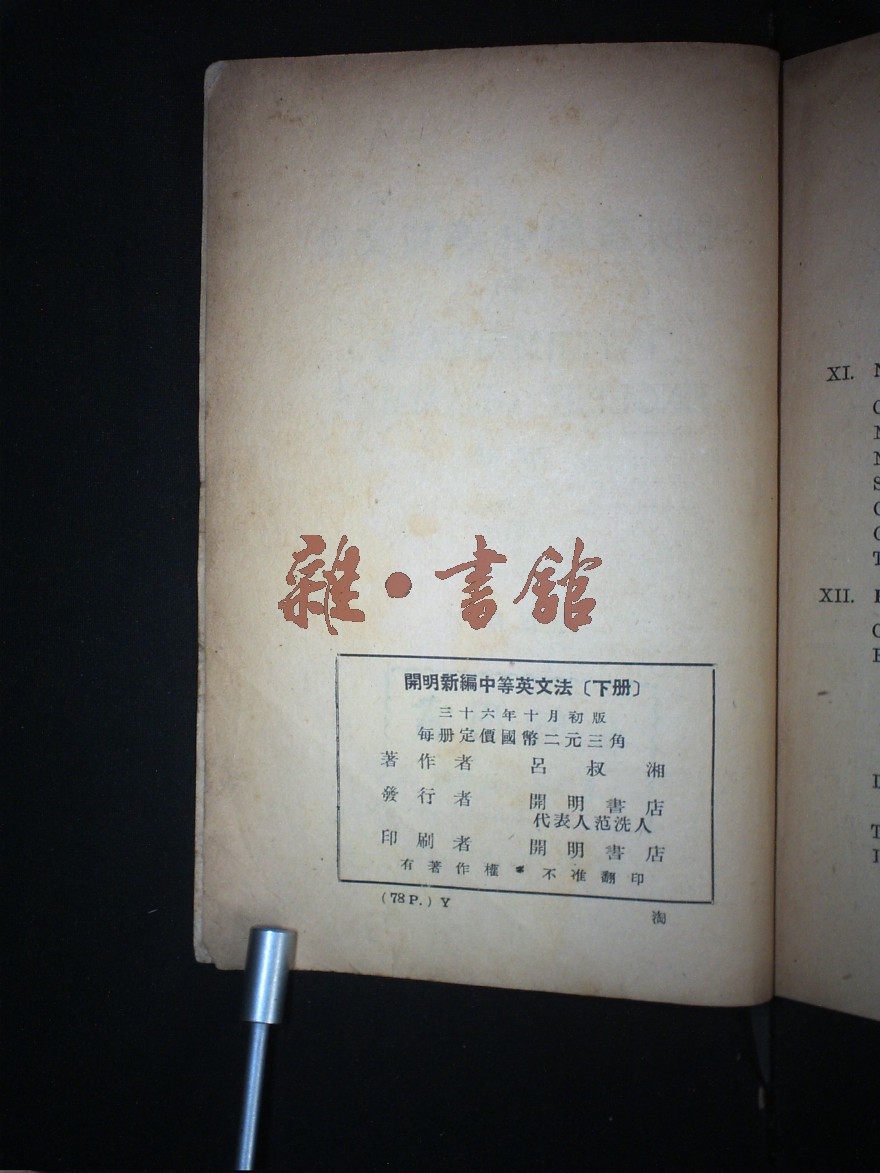 雜·書館
開明新編中等英文法〔下册〕
三十六年十月初版
每册定價國幣二元三角
著作者 呂叔湘
發行者 開明書店
代表人范洗人
印刷者 開明書店
有著作權 不准翻印
(78 P.) Y
淘
XI.
XII.